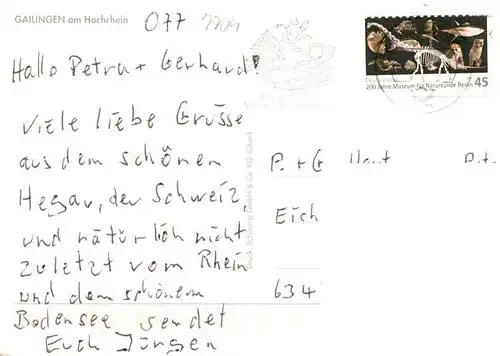 GAILINGEN am Hochrhein
077
Hallo Petra + Gerhard!
Viele liebe Grüsse
aus dem schönen
Hegau, der Schweiz,
und natürlich nicht
zuletzt vom Rhein
und dem schönem
Bodensee sendet
Euch Jürgen
Druck: Schöning GmbH & Co. KG · Lübeck
200 Jahre Museum für Naturkunde Berlin
45
P. + G
Eich
634